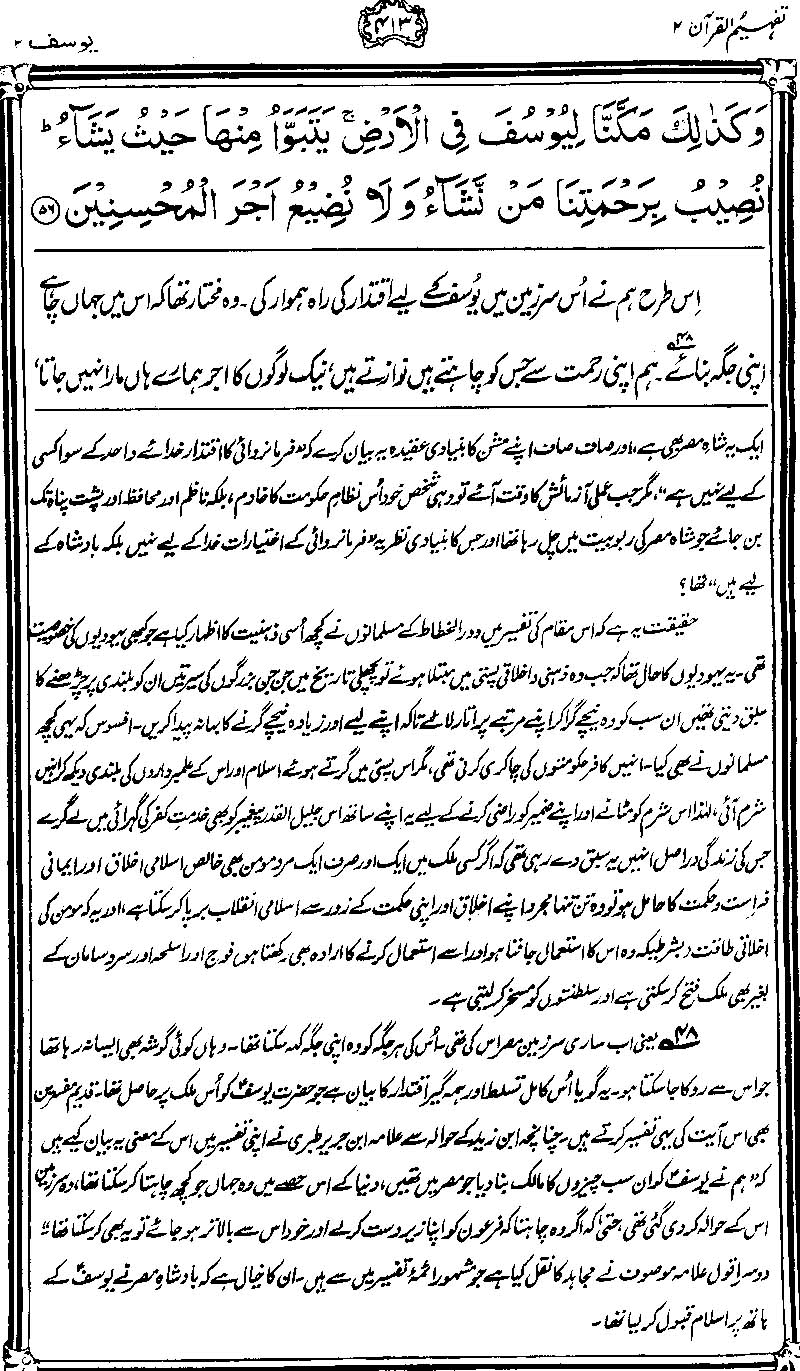 تفہیم القرآن ۲
۴۱۳
یوسف ۲
وَكَذٰلِكَ مَكَّنَّا لِيُوْسُفَ فِى الْاَرْضِ ۚ يَتَبَوَّاُ مِنْهَا حَيْثُ يَشَآءُ ؕ
نُصِيْبُ بِرَحْمَتِنَا مَنْ نَّشَآءُ وَلَا نُضِيْعُ اَجْرَ الْمُحْسِنِيْنَ ۝۵۶
اِس طرح ہم نے اُس سرزمین میں یُوسفؑ کے لیے اقتدار کی راہ ہموار کی۔ وہ مختار تھا کہ اس میں جہاں چاہے
اپنی جگہ بنائے۴۸۔ ہم اپنی رحمت سے جس کو چاہتے ہیں نوازتے ہیں، نیک لوگوں کا اجر ہمارے ہاں مارا نہیں جاتا،
ایک یہ شاہِ مصر ہی ہے، اور صاف صاف اپنے مشن کا بنیادی عقیدہ یہ بیان کرے کہ ”فرمانروائی کا اقتدار خدائے واحد کے سوا کسی
کے لیے نہیں ہے“، مگر جب عملی آزمائش کا وقت آئے تو وہی شخص خود اُس نظامِ حکومت کا خادم، بلکہ ناظم اور محافظ اور پشت پناہ تک
بن جائے جو شاہِ مصر کی ربوبیت میں چل رہا تھا اور جس کا بنیادی نظریہ ”فرمانروائی کے اختیارات خدا کے لیے نہیں بلکہ بادشاہ کے
لیے ہیں“ تھا؟
حقیقت یہ ہے کہ اس مقام کی تفسیر میں دورِ انحطاط کے مسلمانوں نے کچھ اُسی ذہنیت کا اظہار کیا ہے جو کبھی یہودیوں کی خصوصیت
تھی۔ یہ یہودیوں کا حال تھا کہ جب وہ ذہنی و اخلاقی پستی میں مبتلا ہوئے تو پچھلی تاریخ میں جن جن بزرگوں کی سیرتیں ان کو بلندی پر چڑھنے کا
سبق دیتی تھیں ان سب کو وہ نیچے گرا کر اپنے مرتبے پر اتار لائے تاکہ اپنے لیے اور زیادہ نیچے گرنے کا بہانہ پیدا کریں۔ افسوس کہ یہی کچھ
مسلمانوں نے بھی کیا۔ انہیں کافر حکومتوں کی چاکری کرنی تھی، مگر اس پستی میں گرتے ہوئے اسلام اور اس کے علمبرداروں کی بلندی دیکھ کر انہیں
شرم آئی، لہٰذا اس شرم کو مٹانے اور اپنے ضمیر کو راضی کرنے کے لیے یہ اپنے ساتھ اس جلیل القدر پیغمبر کو بھی خدمتِ کفر کی گہرائی میں لے گرے
جس کی زندگی دراصل انہیں یہ سبق دے رہی تھی کہ اگر کسی ملک میں ایک اور صرف ایک مردِ مومن بھی خالص اسلامی اخلاق اور ایمانی
فراست و حکمت کا حامل ہو تو وہ تنِ تنہا مجرد اپنے اخلاق اور اپنی حکمت کے زور سے اسلامی انقلاب برپا کر سکتا ہے، اور یہ کہ مومن کی
اخلاقی طاقت (بشرطیکہ وہ اس کا استعمال جانتا ہو اور اسے استعمال کرنے کا ارادہ بھی رکھتا ہو) فوج اور اسلحہ اور سروسامان کے
بغیر بھی ملک فتح کر سکتی ہے اور سلطنتوں کو مسخر کر لیتی ہے۔
۴۸ یعنی اب ساری سرزمین مصر اس کی تھی۔ اُس کی ہر جگہ کو وہ اپنی جگہ کہہ سکتا تھا۔ وہاں کوئی گوشہ بھی ایسا نہ رہا تھا
جو اس سے روکا جا سکتا ہو۔ یہ گویا اُس کامل تسلط اور ہمہ گیر اقتدار کا بیان ہے جو حضرت یوسفؑ کو اُس ملک پر حاصل تھا۔ قدیم مفسرین
بھی اس آیت کی یہی تفسیر کرتے ہیں۔ چنانچہ ابن زید کے حوالہ سے علامہ ابن جریر طبری نے اپنی تفسیر میں اس کے معنی یہ بیان کیے ہیں
کہ ”ہم نے یوسفؑ کو ان سب چیزوں کا مالک بنا دیا جو مصر میں تھیں، دنیا کے اس حصے میں وہ جہاں جو کچھ چاہتا کر سکتا تھا، وہ سرزمین
اس کے حوالہ کر دی گئی تھی، حتیٰ کہ اگر وہ چاہتا کہ فرعون کو اپنا زیردست کر لے اور خود اس سے بالاتر ہو جائے تو یہ بھی کر سکتا تھا“
دوسرا قول علامہ موصوف نے مجاہد کا نقل کیا ہے جو مشہور ائمۂ تفسیر میں سے ہیں۔ ان کا خیال ہے کہ بادشاہِ مصر نے یوسفؑ کے
ہاتھ پر اسلام قبول کر لیا تھا۔